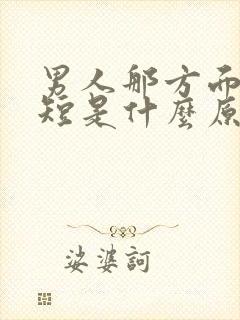 男人那方面
短是什麼原
娑婆訶